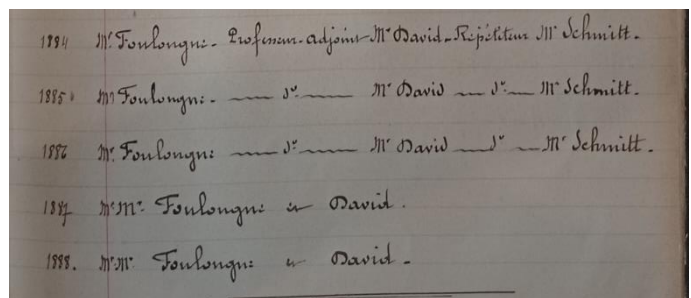 1884 Mr. Foulongne - Professeur-adjoint Mr David - Répétiteur Mr Schmitt -
1885 Mr Foulongne - —— do —— Mr David — do — Mr Schmitt.
1886 Mr. Foulongne —— do —— Mr David — do — Mr Schmitt.
1887 Mr. Mr. Foulongne et David.
1888. Mr. Mr. Foulongne et David -